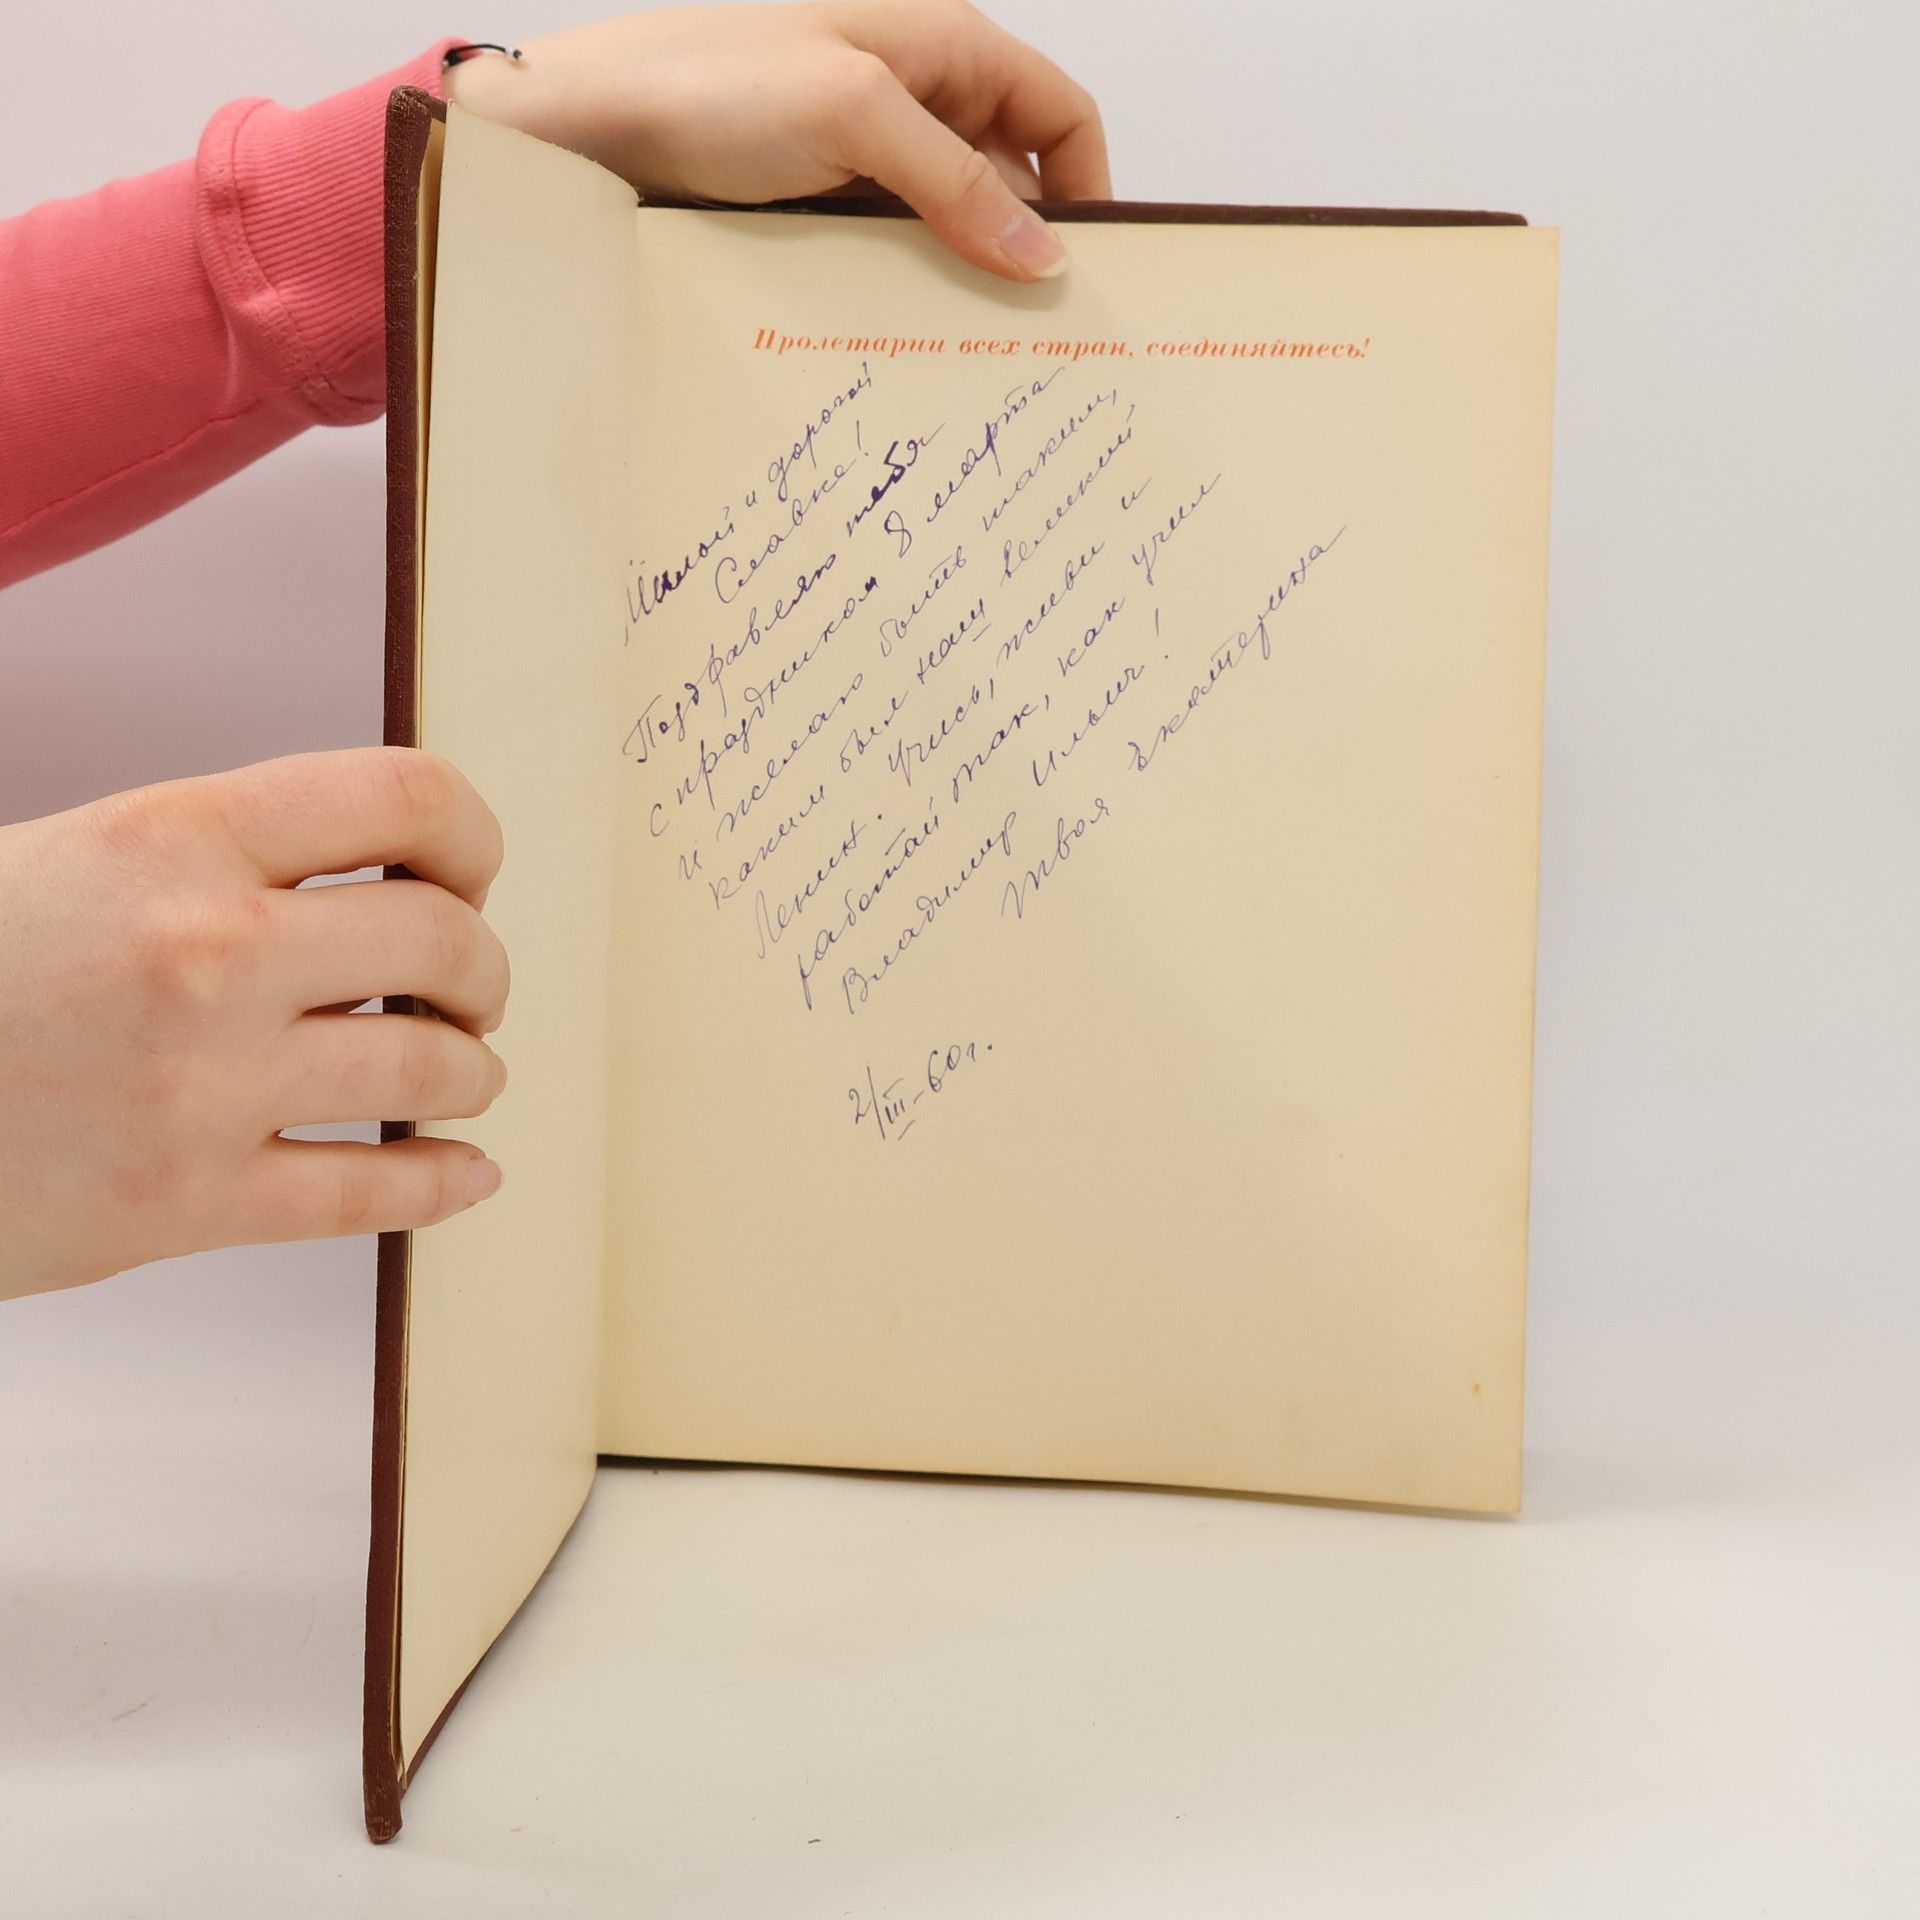 Пролетарии всех стран, соединяйтесь!
Милый и дорогой
Славка!
Поздравляю тебя
с праздником 8 марта
и желаю быть таким,
каким был наш великий
Ленин. Учись, живи и
работай так, как учил
Владимир Ильич!
Твоя Екатерина
2/III-60г.